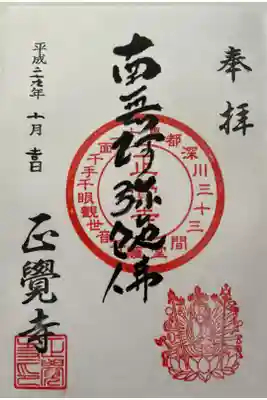 奉拝
南無阿弥陀佛
正覺寺
平成二十九年 十月 吉日
深川三十三間堂
千手千眼觀世音
正覺寺